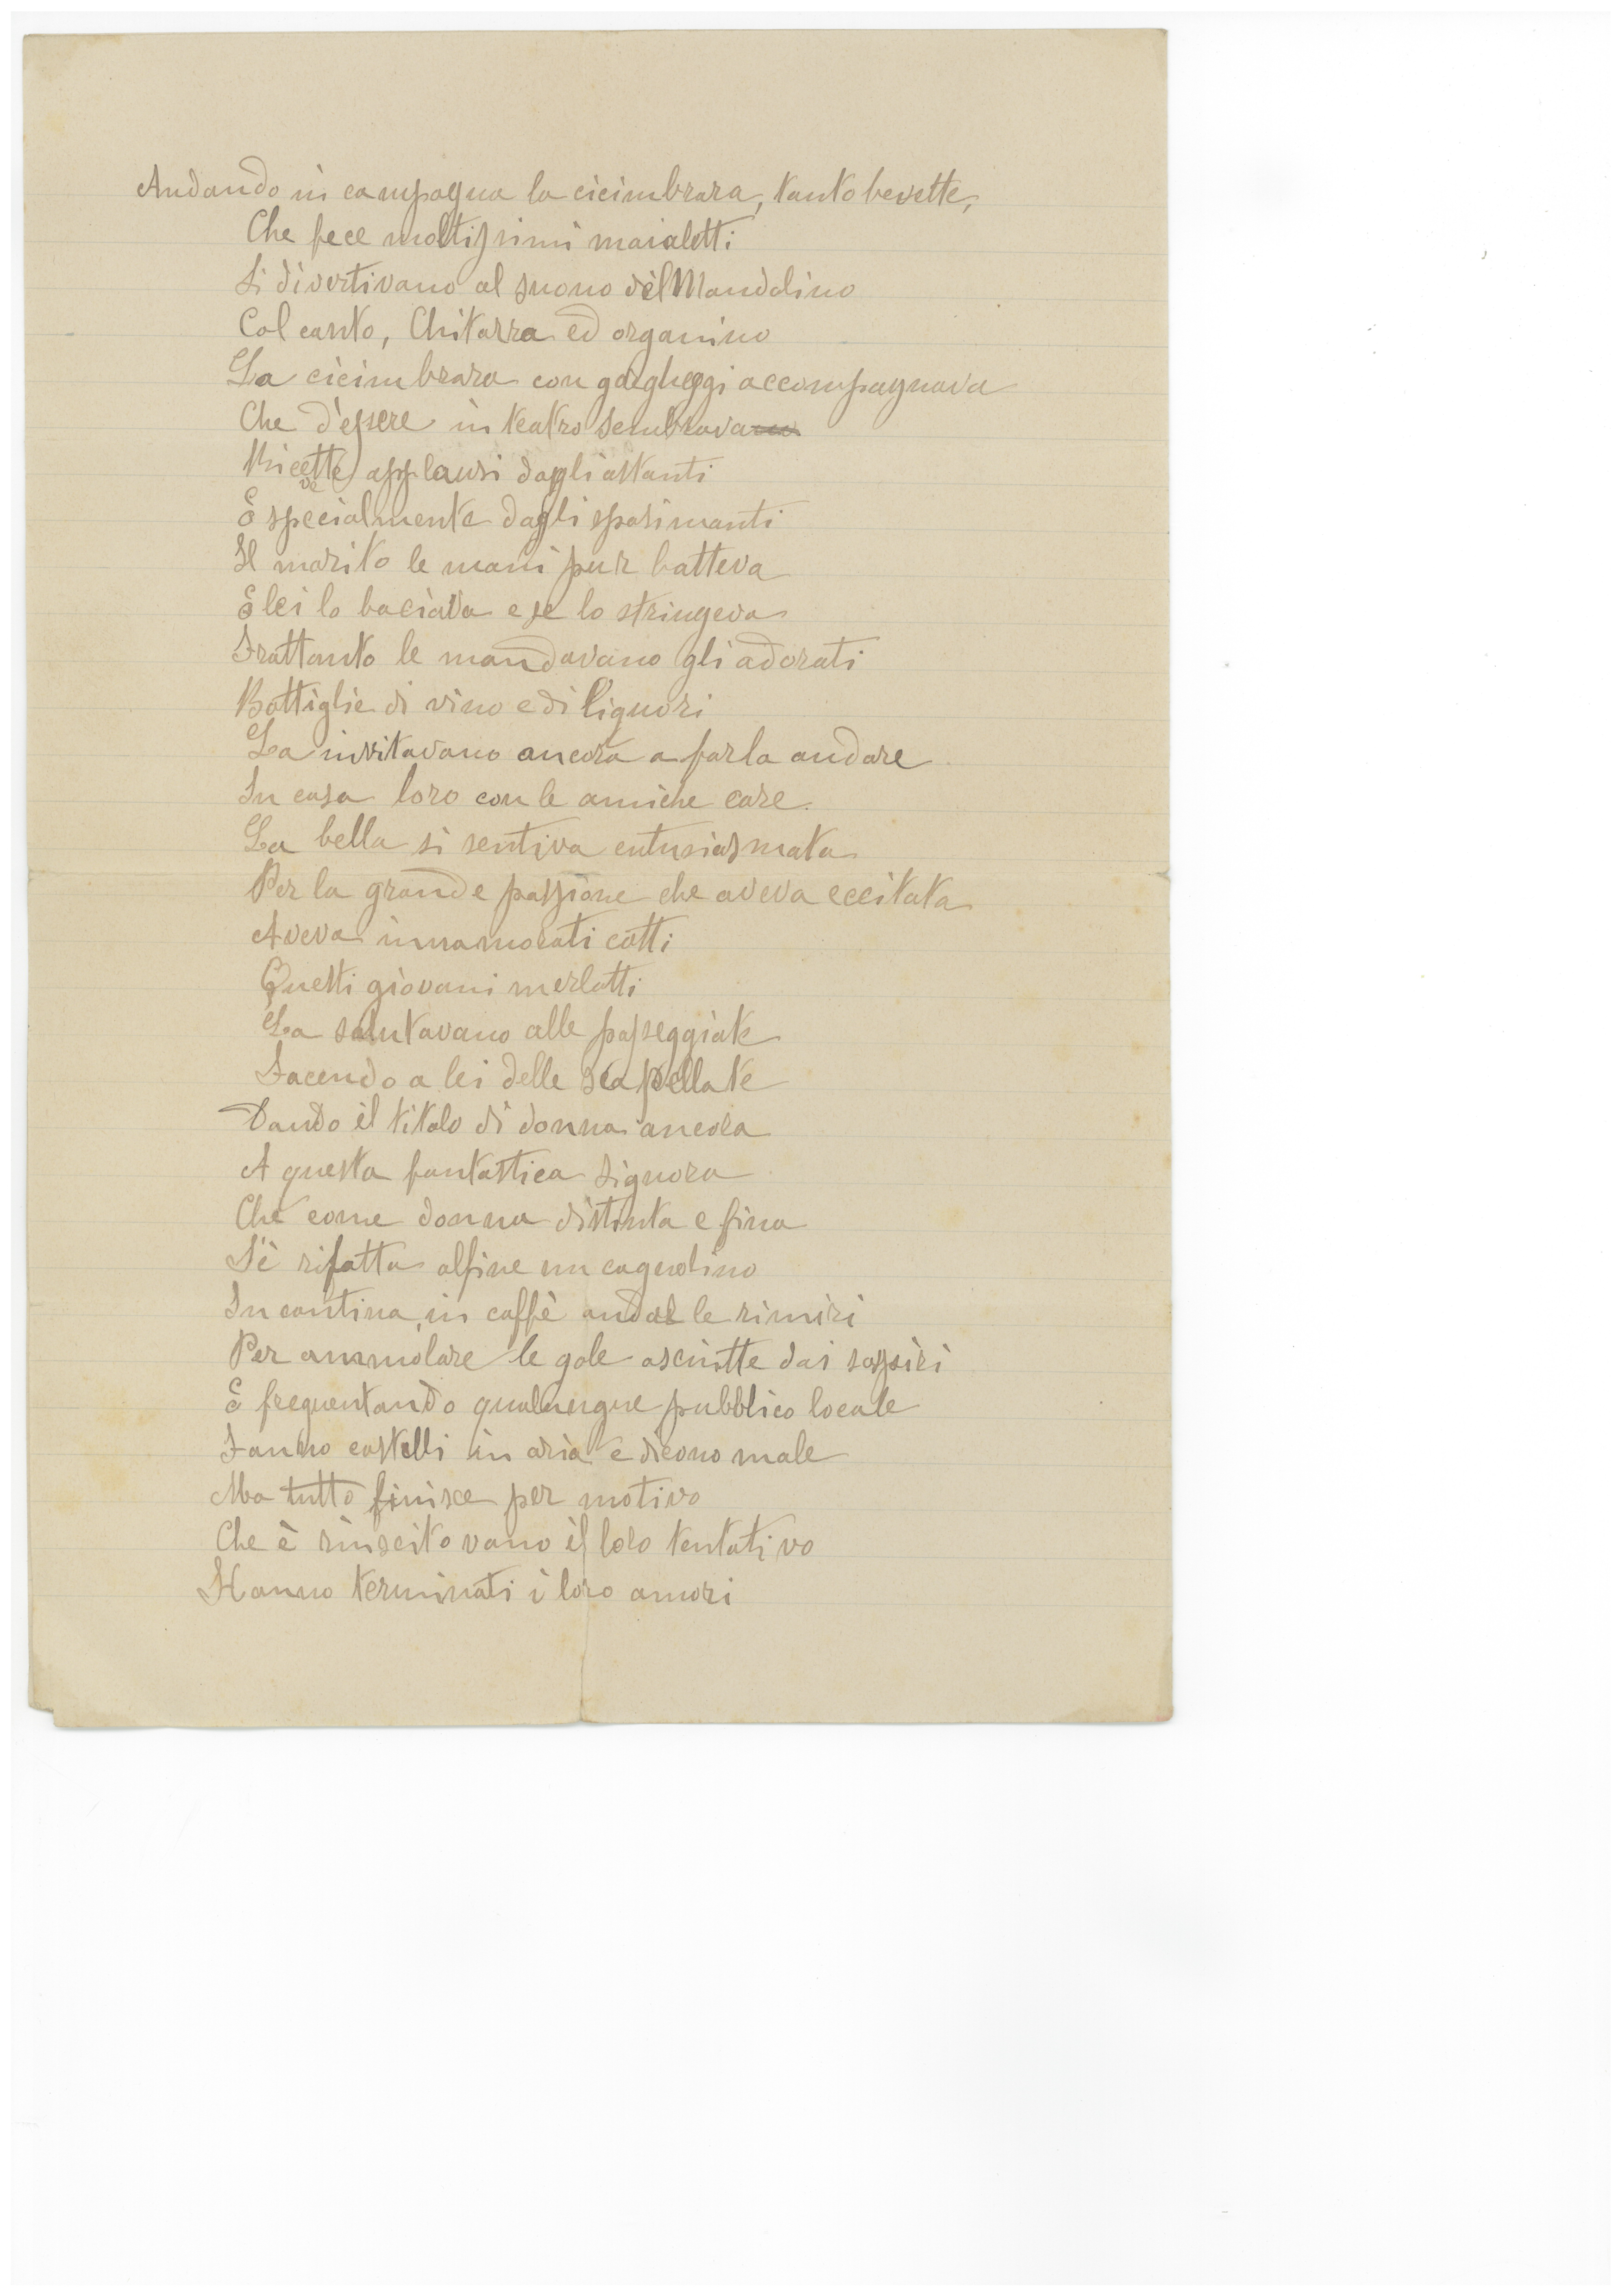 Andando in campagna la cicimbrara, tanto bevette,
Che fece moltissimi maialetti
Si divertivano al suono del Mandolino
Col canto, Chitarra ed organino
La cicimbrara con gorgheggi accompagnava
Che d'essere in teatro sembrava
Ricevette applausi dagli astanti
E specialmente dagli spasimanti
Il marito le mani pur batteva
E lei lo baciava e se lo stringeva
Frattanto le mandavano gli adorati
Bottiglie di vino e di liquori
La invitavano ancora a farla andare
In casa loro con le amiche care.
La bella si sentiva entusiasmata
Per la grande passione che aveva eccitata
Aveva innamorati cotti
Questi giovani merlotti
La salutavano alle passeggiate
Facendo a lei delle scapellate
Dando il titolo di donna ancora
A questa fantastica signora
Che come donna distinta e fina
S'è rifatta alfine un cagnolino
In cantina, in caffè andar le rimiri
Per ammolare le gole asciutte dai sospiri
E frequentando qualunque pubblico locale
Fanno castelli in aria e dicono male
Ma tutto finisce per motivo
Che è riuscito vano il loro tentativo
Hanno terminati i loro amori